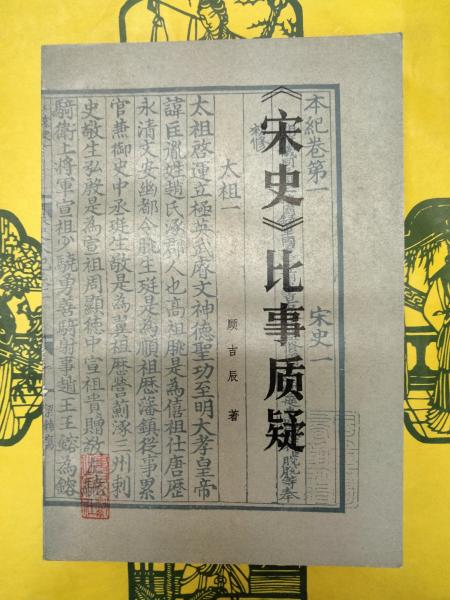 《宋史》比事质疑
顾吉辰 著
本紀卷第一
宋史一
脫脫等奉
敕修
太祖一
太祖啓運立極英武睿文神德聖功至明大孝皇帝
諱匡胤姓趙氏涿郡人也高祖朓是為僖祖仕唐歷
永清文安幽都令朓生珽是為順祖歷藩鎮從事累
官兼御史中丞珽生敬是為翼祖歷營薊涿三州刺
史敬生弘殷是為宣祖周顯德中宣祖貴贈敬
騎衛上將軍宣祖少驍勇善騎射事趙王王鎔為鎔